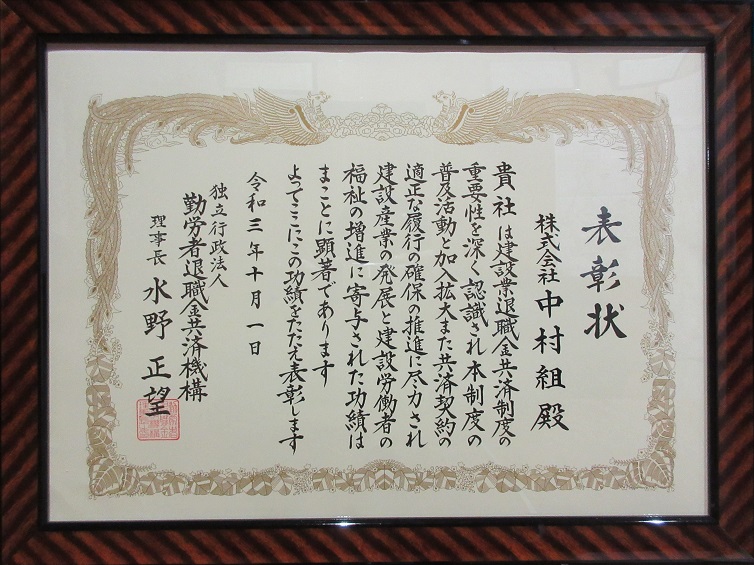 表彰状
株式会社中村組殿
貴社は建設業退職金共済制度の
重要性を深く認識され本制度の
普及活動と加入拡大また共済契約の
適正な履行の確保の推進に尽力され
建設産業の発展と建設労働者の
福祉の増進に寄与された功績は
まことに顕著であります
よってここにこの功績をたたえ表彰します
令和三年十月一日
独立行政法人
勤労者退職金共済機構
理事長 水野正望